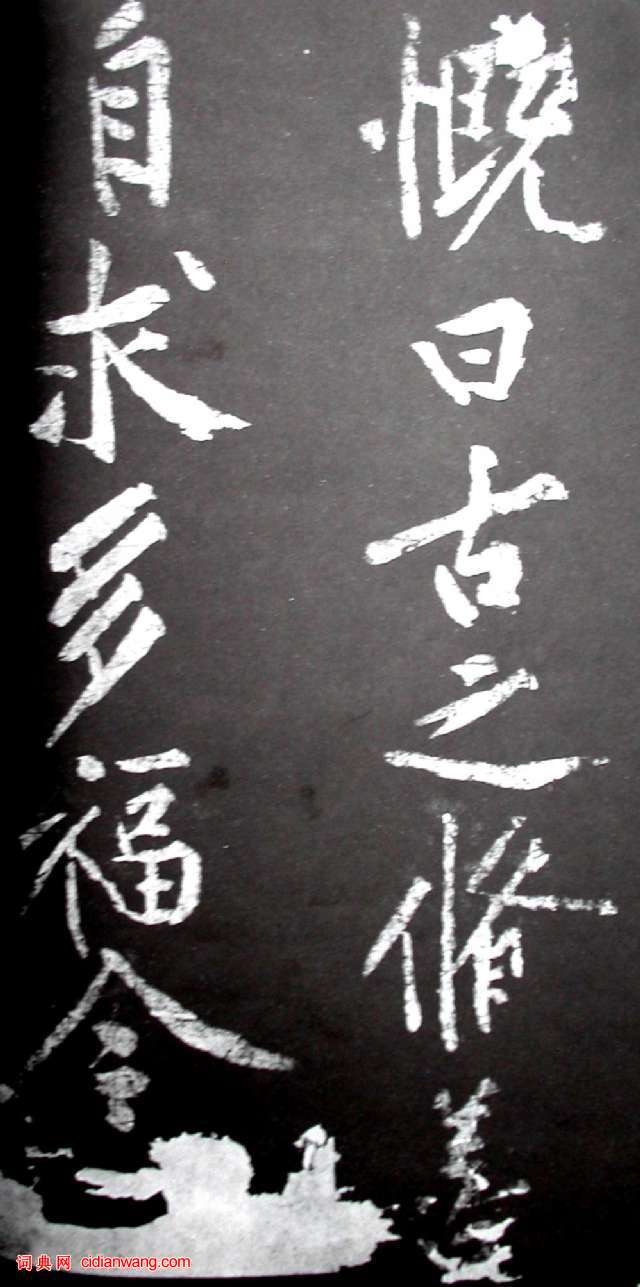 慨曰古之脩善
自求多福
词典网 cidianwang.com